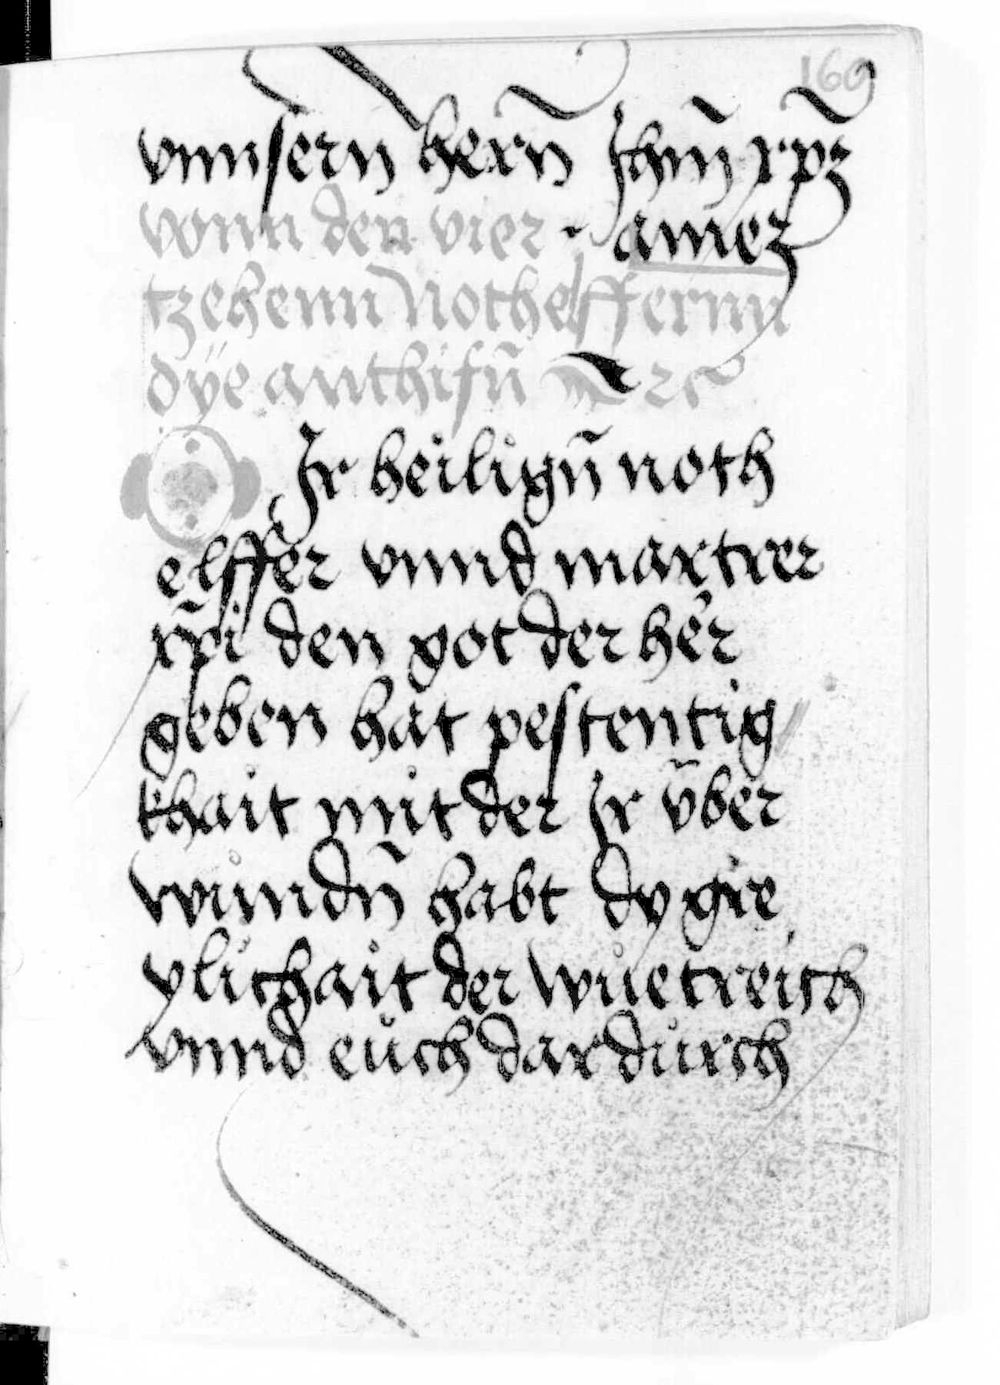 169
vnnsern herñ Jhm̃ xp̃ʒ
vonn den vier · amen
tzehenn nothelffernn
dÿe anthifñ ⁊c
O Jr heiligñ noth
elffer vnnd martrer
xp̃i den got der her
geben hat pestentig
khait mit der Jr v̈ber
wundñ habt dy gre
ylichait der wuetreich
vnnd euch dardurch